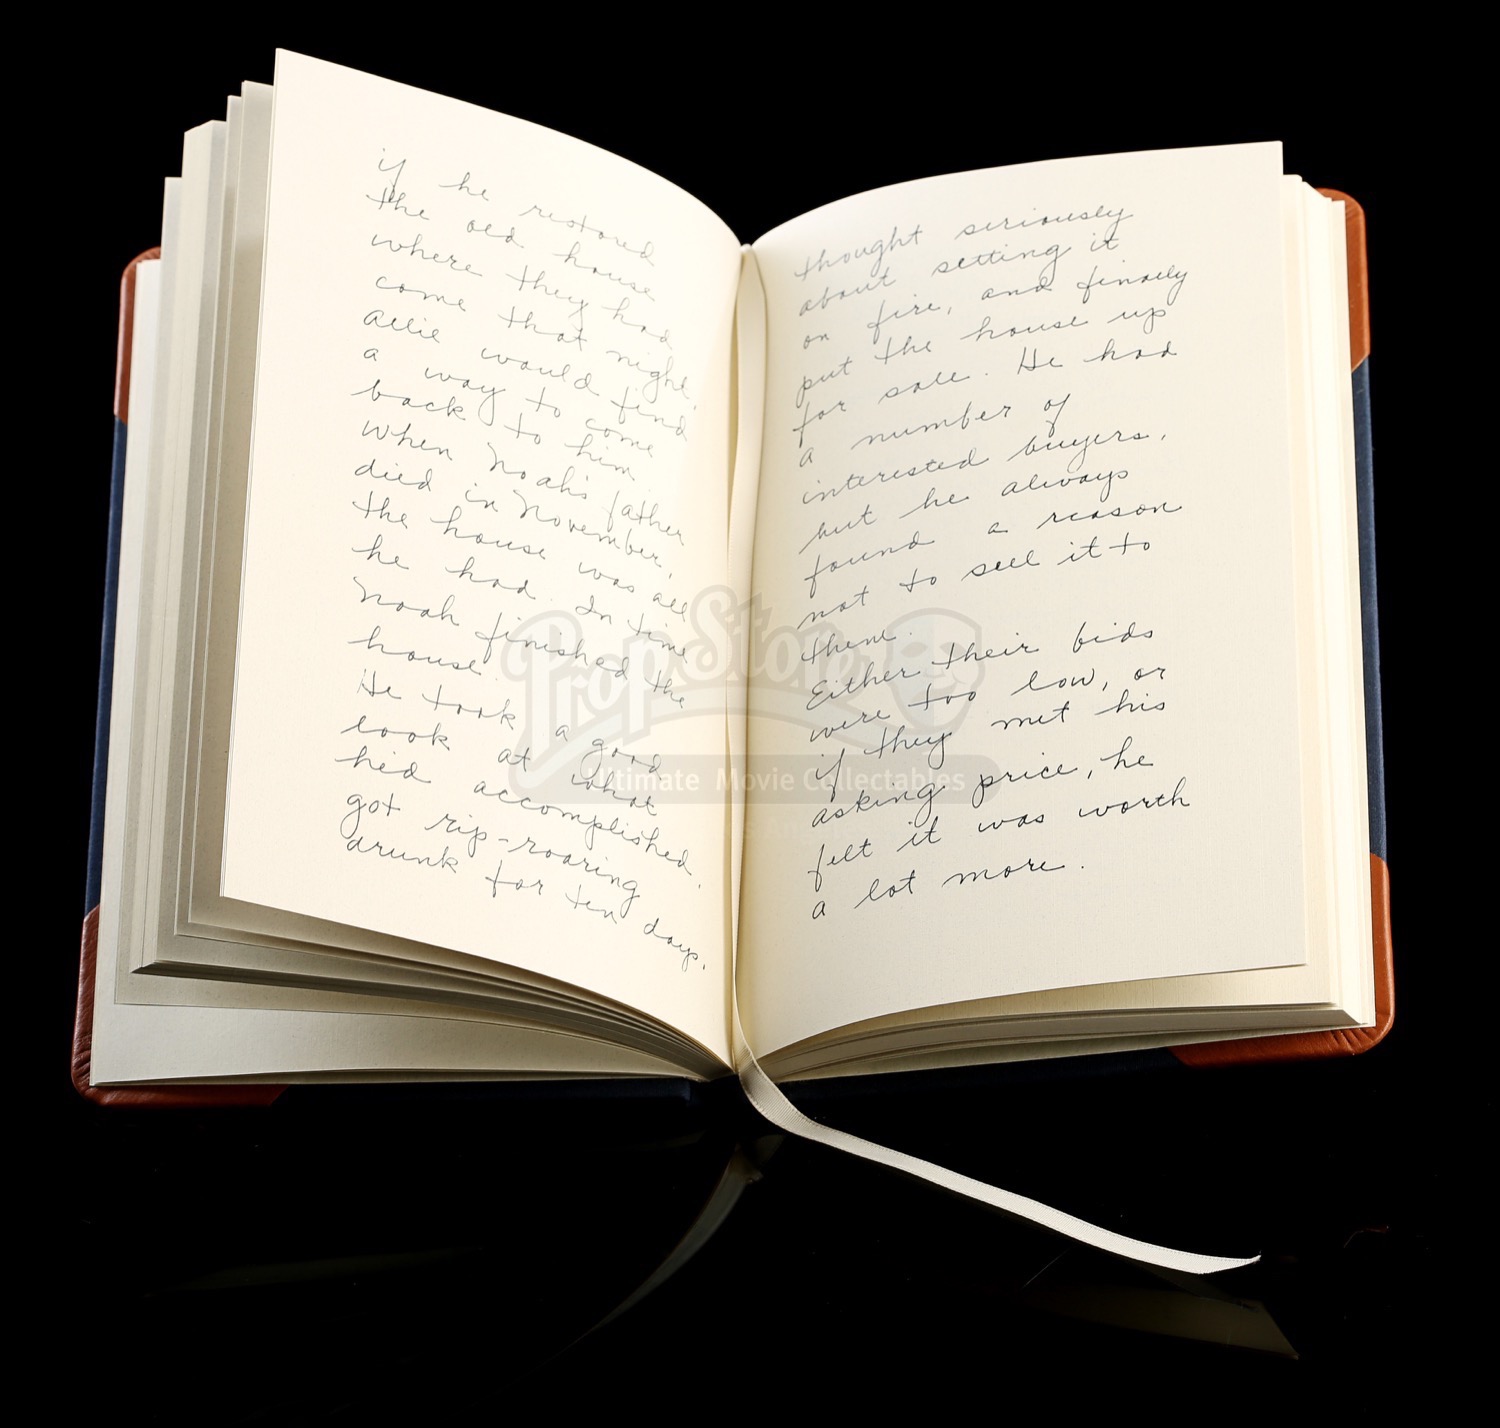 if he restored
the old house
where they had
come that night,
Allie would find
a way to come
back to him.
When Noah's father
died in November,
the house was all
he had. In time
Noah finished the
house.
He took a good
look at what
he'd accomplished.
got rip-roaring
drunk for ten days.
thought seriously
about setting it
on fire, and finally
put the house up
for sale. He had
a number of
interested buyers,
but he always
found a reason
not to sell it to
them.
Either their bids
were too low, or
if they met his
asking price, he
felt it was worth
a lot more.
Prop Store
Ultimate Movie Collectables